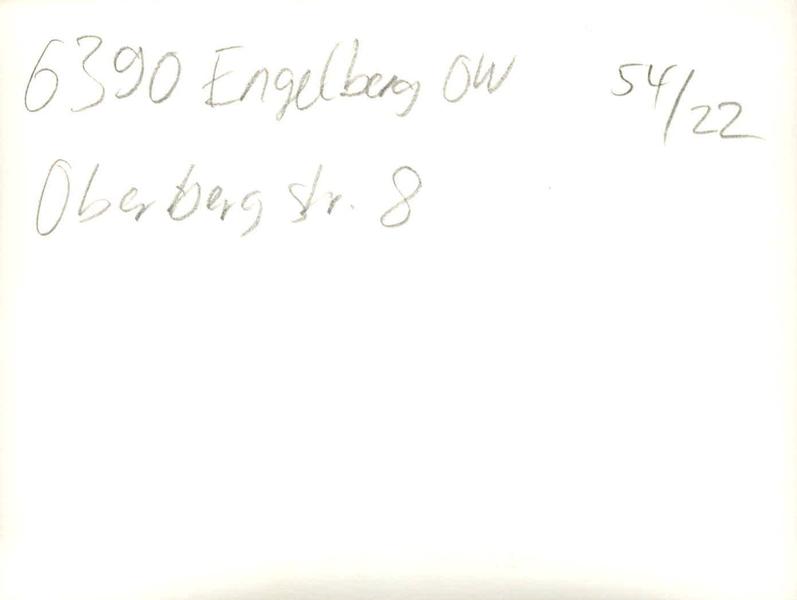 6390 Engelberg OW 54/22
Oberbergstr. 8